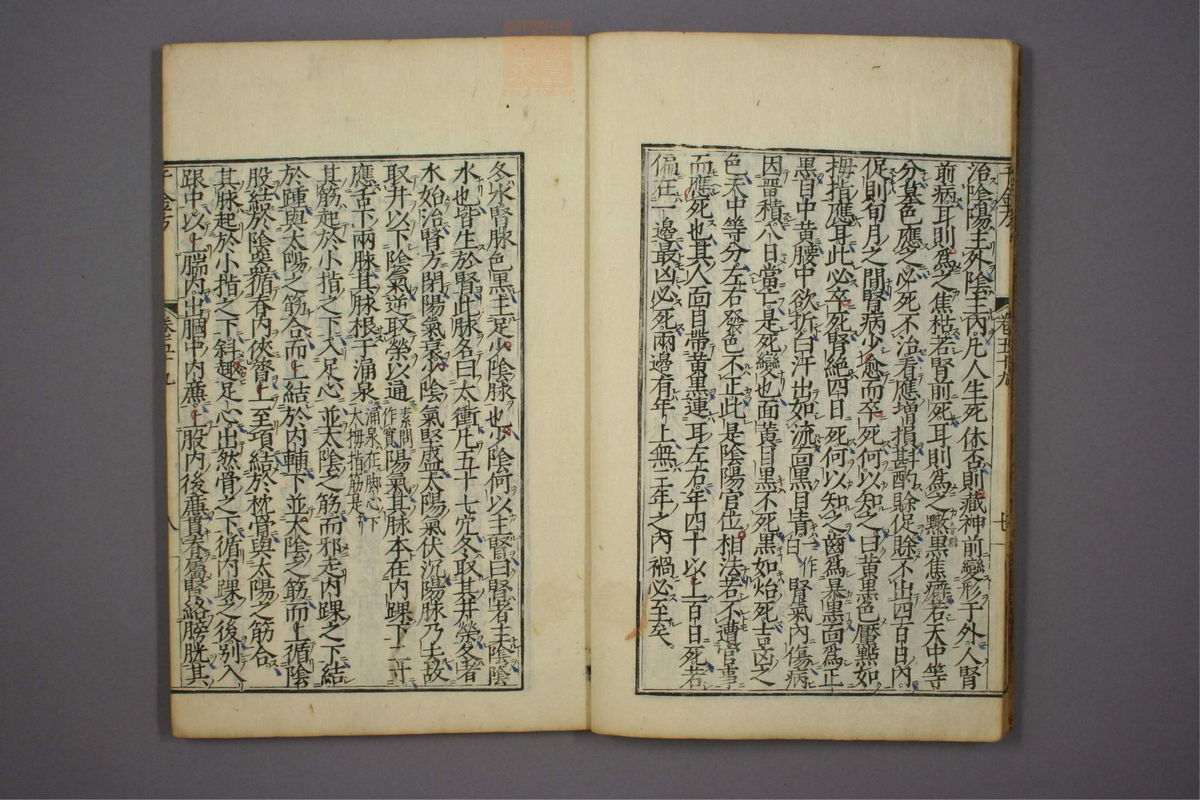 治陰傷主外陰主內凡人生死休否則藏神前變形于外人腎
前病耳則爲之焦枯若腎前死耳則爲之黧黑焦癖若天中等
分墓色應之必死不治看應增損斟酌賒促賒不出四百日內
促則旬月之間腎病少愈而卒死何以知之曰黃黑色黶點如
拇指應耳此必卒死腎絕四日死何以知之齒爲暴黑面爲正
黑目中黃腰中欲折白汗出如流面黑目青一作白腎氣內傷病
因留積八日當亡是死變也面黃目黑不死黑如炲死吉凶之
色天中等分左右發色不正此是陰陽官位相法若不遭官事
而應死也其人面目帶黃黑連耳左右年四十以上百日死若
偏在一邊最凶必死兩邊有年上無三年之內禍必至矣
卷五十九
冬水腎脉色黑主足少陰脉也少陰何以主腎曰腎者主陰陰
水也皆生於腎此脉名曰太衝凡五十七穴冬取其井滎冬者
水始治腎方閉陽氣衰少陰氣堅盛太陽氣伏沉陽脉乃去故
取井以下陰氣逆取滎以通素問作實陽氣其脉本在內踝下二寸
應舌下兩脉其脉根于涌泉涌泉在脚心下大拇指筋是
其筋起於小指之下入足心並太陰之筋而邪走內踝之下結
於踵與太陽之筋合而上結於內輔下並太陰之筋而上循陰
股結於陰與循脊內俠膂上至項結於枕骨與太陽之筋合
其脉起於小指之下斜趣足心出然骨之下循內踝之後別入
跟中以上腨內出膕中內廉上股內後廉貫脊屬腎絡膀胱其
千金方 卷五十九 八